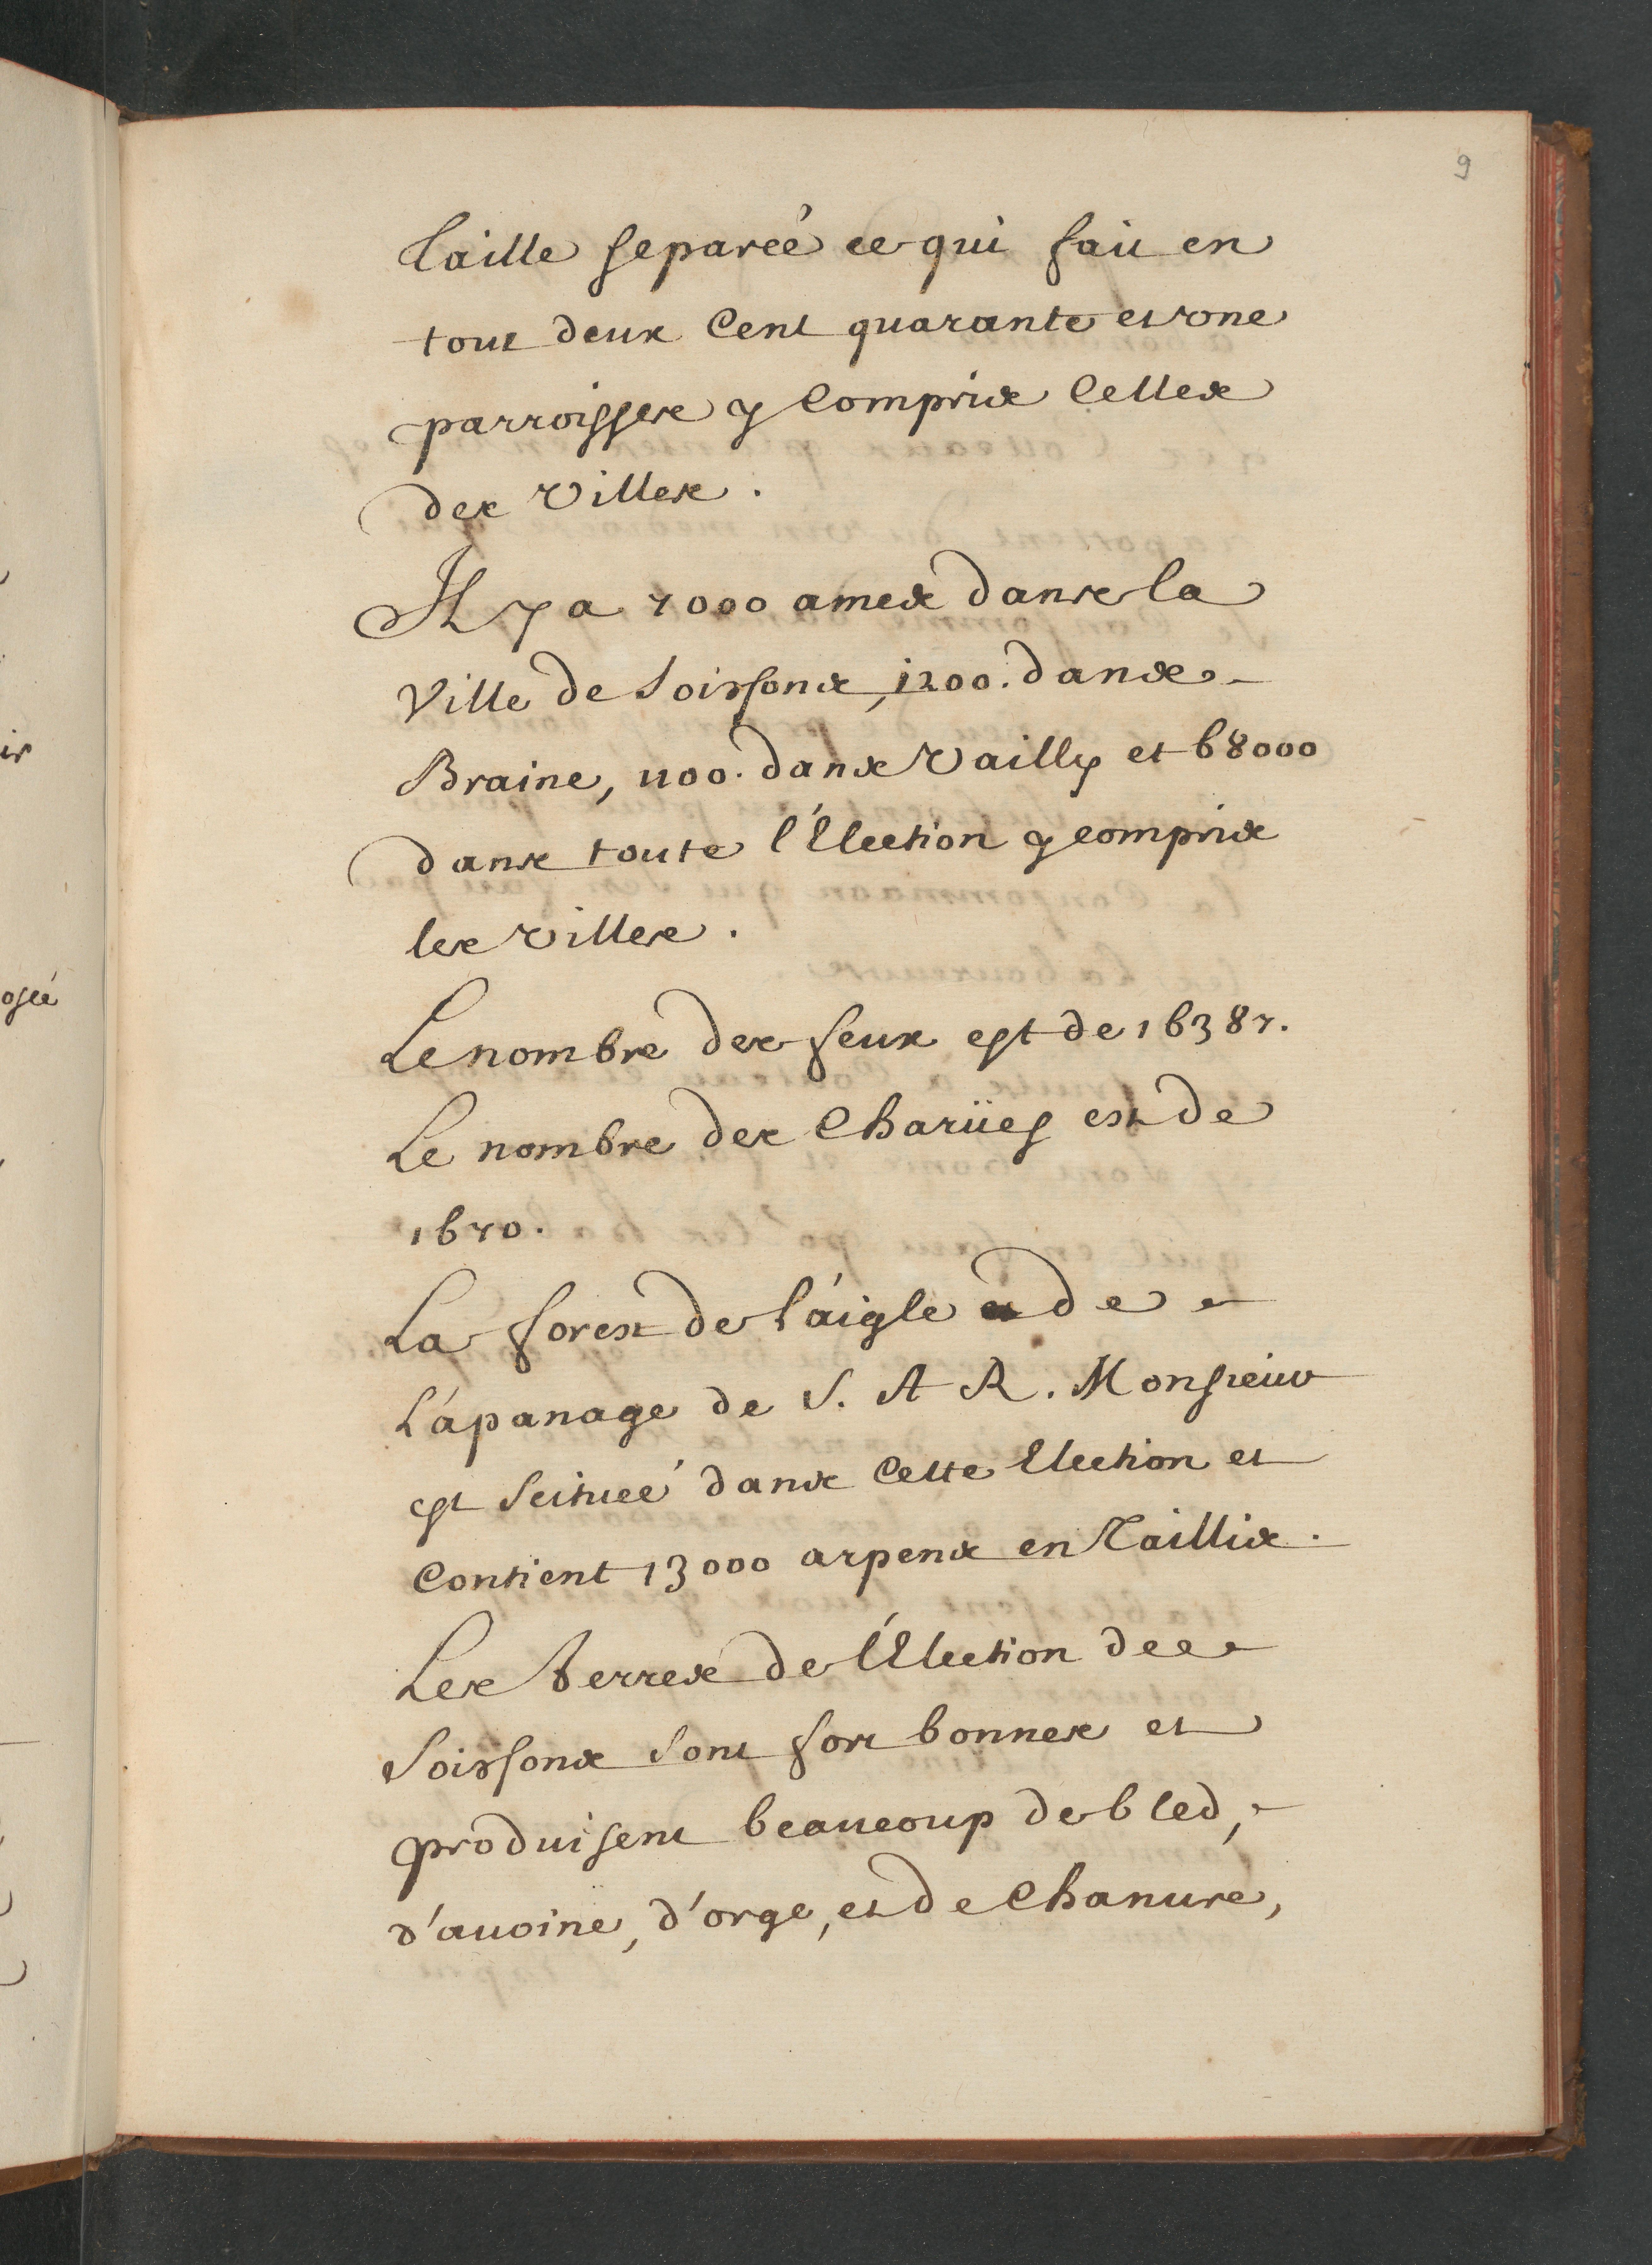 9
taille separeé ce qui fait en
tout deux Cent quarante et vne
parroisses y Compris Celles
des Villes.
Il y a 7000 ames dans la
Ville de Soissons, 1200. dans
Braine, 1100. dans Vailly et 68000
dans toute l'Election y compris
les Villes.
Le nombre des feux est de 16387.
Le nombre des Charües est de
1670.
La forest de l'aigle de
L'apanage de S. A R. Monsieur
est Scituée dans Cette Election et
Contient 13000 arpens en Taillis.
Les terres de l'Election de
Soissons sont fort bonnes et
produisent beaucoup de bled,
d'auoine, d'orge, et de Chanure,